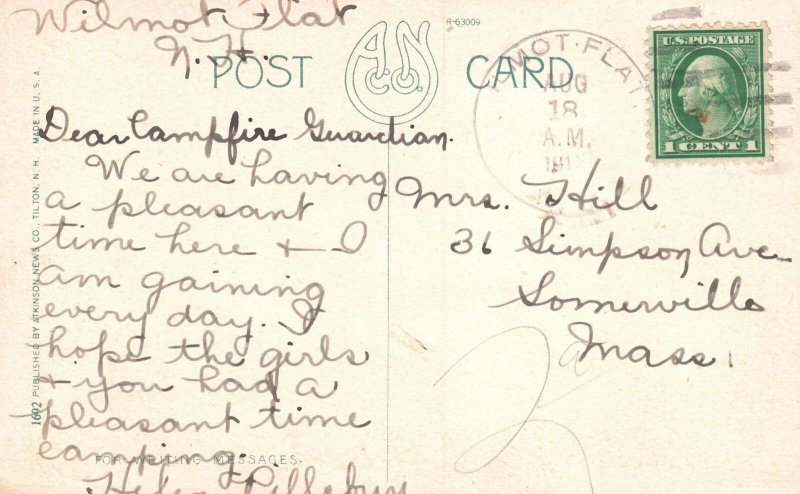 Wilmot Flat
N.H.
R-63009
POST CARD
A.N.
CO.
Dear Campfire Guardian.
We are having
a pleasant
time here + I
am gaining
every day. I
hope the girls
+ you had a
pleasant time
camping.
Helen
FOR WRITING MESSAGES.
1692 PUBLISHED BY ATKINSON NEWS CO., TILTON, N. H. MADE IN U. S. A.
MOT FLAT
AUG
18
A.M.
U.S. POSTAGE
1 CENT 1
Mrs. Hill
36 Simpson Ave
Somerville
Mass.